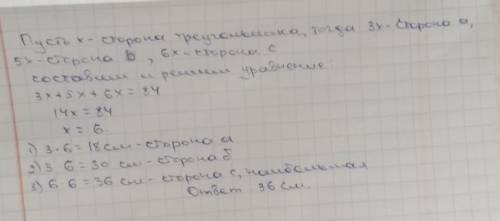 Пусть х - сторона треугольника, тогда 3х - сторона а,
5х - сторона b, 6х - сторона с
составим и решим уравнение
3х+5х+6х=84
14х=84
х=6
1) 3·6=18см - сторона а
2) 3 6=30 см - сторона б
3) 6 6=36 см - сторона с, наибольшая
Ответ 36 см.